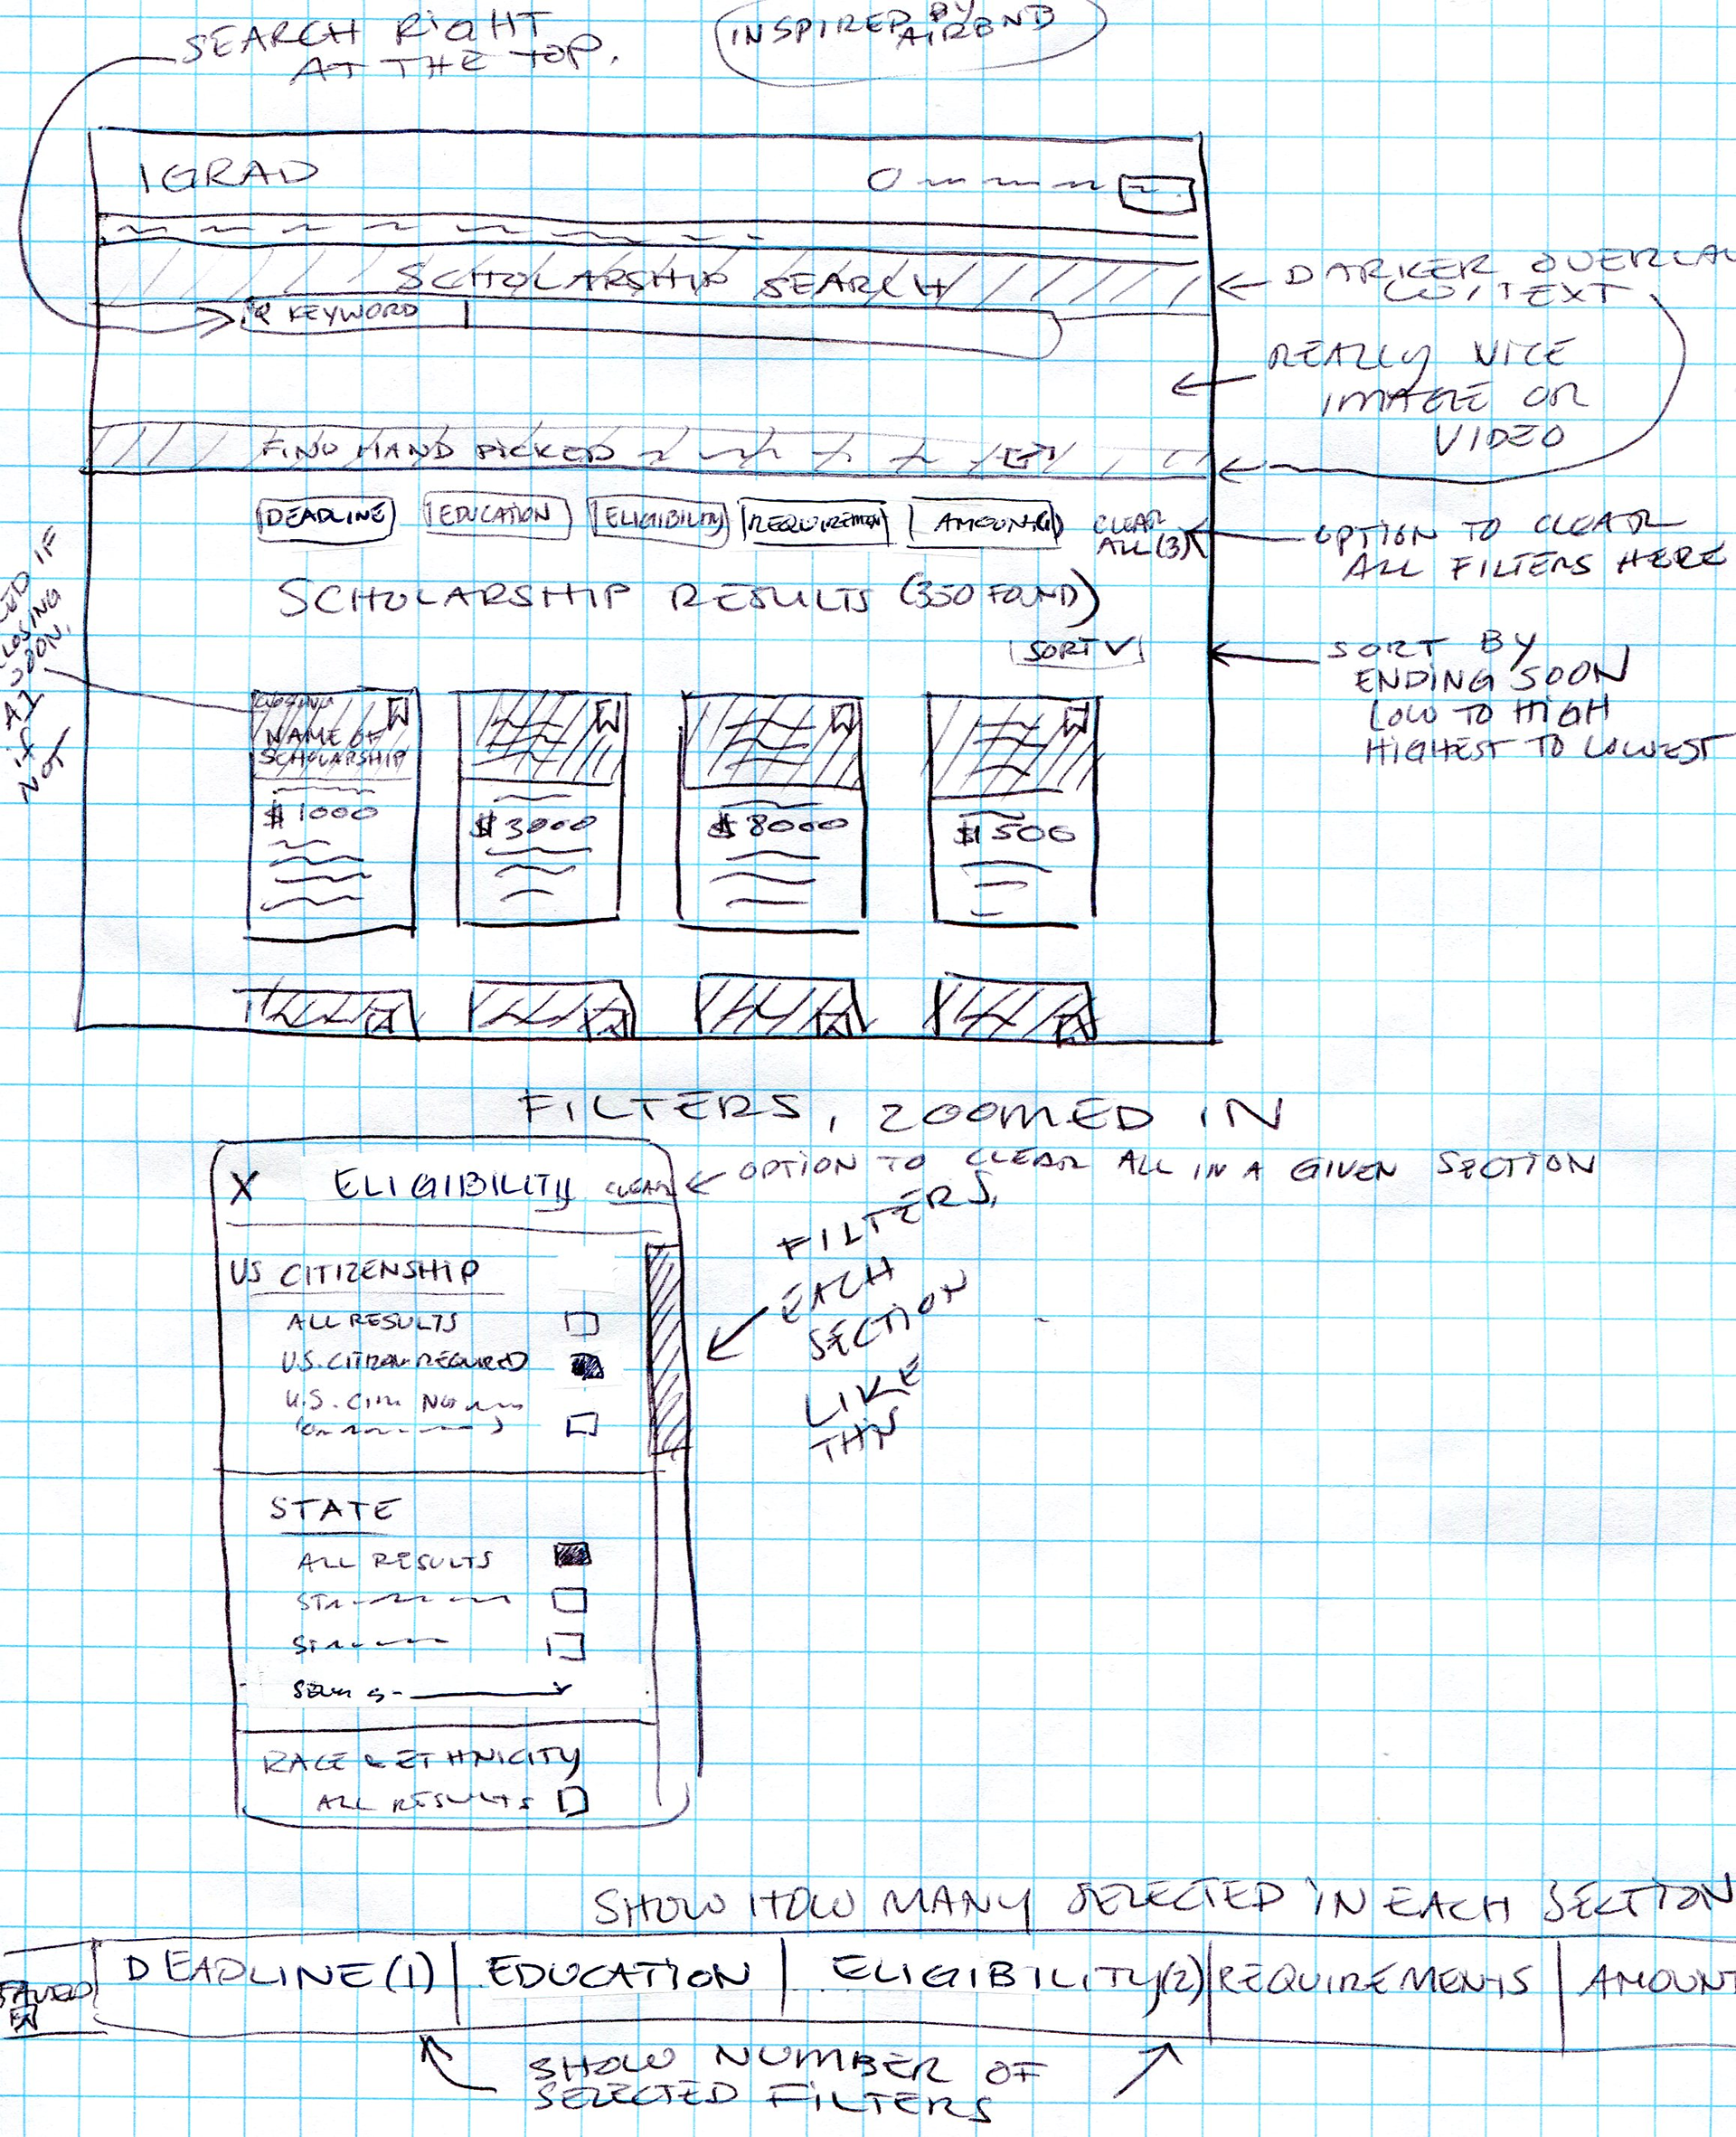 SEARCH RIGHT
AT THE TOP.
INSPIRED BY
AIRBNB
IGRAD
SCHOLARSHIP SEARCH
KEYWORD
DARKER OVERLAY
W/TEXT
REALLY NICE
IMAGE OR
VIDEO
FIND HAND PICKED
DEADLINE
EDUCATION
ELIGIBILITY
REQUIREMEN
AMOUNT(1)
CLEAR
ALL (3)
OPTION TO CLEAR
ALL FILTERS HERE
SCHOLARSHIP RESULTS (350 FOUND)
SORT V
SORT BY
ENDING SOON
LOW TO HIGH
HIGHEST TO LOWEST
IF
CLOSING
SOON.
if
NOT
CLOSING
NAME OF
SCHOLARSHIP
$1000
$3000
$8000
$1500
FILTERS, ZOOMED IN
X ELIGIBILITY CLEAR
OPTION TO CLEAR ALL IN A GIVEN SECTION
FILTERS,
EACH
SECTION
LIKE
THIS
US CITIZENSHIP
ALL RESULTS
U.S. CITIZEN REQUIRED
U.S. CITI. NO
STATE
ALL RESULTS
ST
ST
RACE & ETHNICITY
ALL RESULTS
SHOW HOW MANY SELECTED IN EACH SECTION
SAVED
DEADLINE(1)
EDUCATION
ELIGIBILITY(2)
REQUIREMENTS
AMOUNT
SHOW NUMBER OF
SELECTED FILTERS